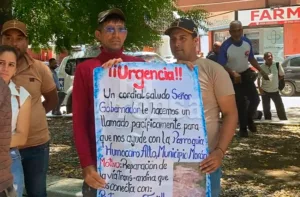 FARM
¡¡¡Urgencia!!!
Un cordial saludo Señor
Gobernador le hacemos un
llamado pacificamente para
que nos ayude con la Parroquia
Humocaro Alto, Municipio Morán
Motivo: Reparación de
la via trans-andina que
nos conecta con: